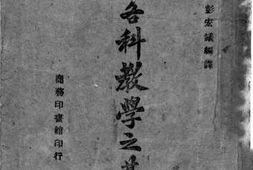 彭宏議編譯
各科教學之
商務印書館印行